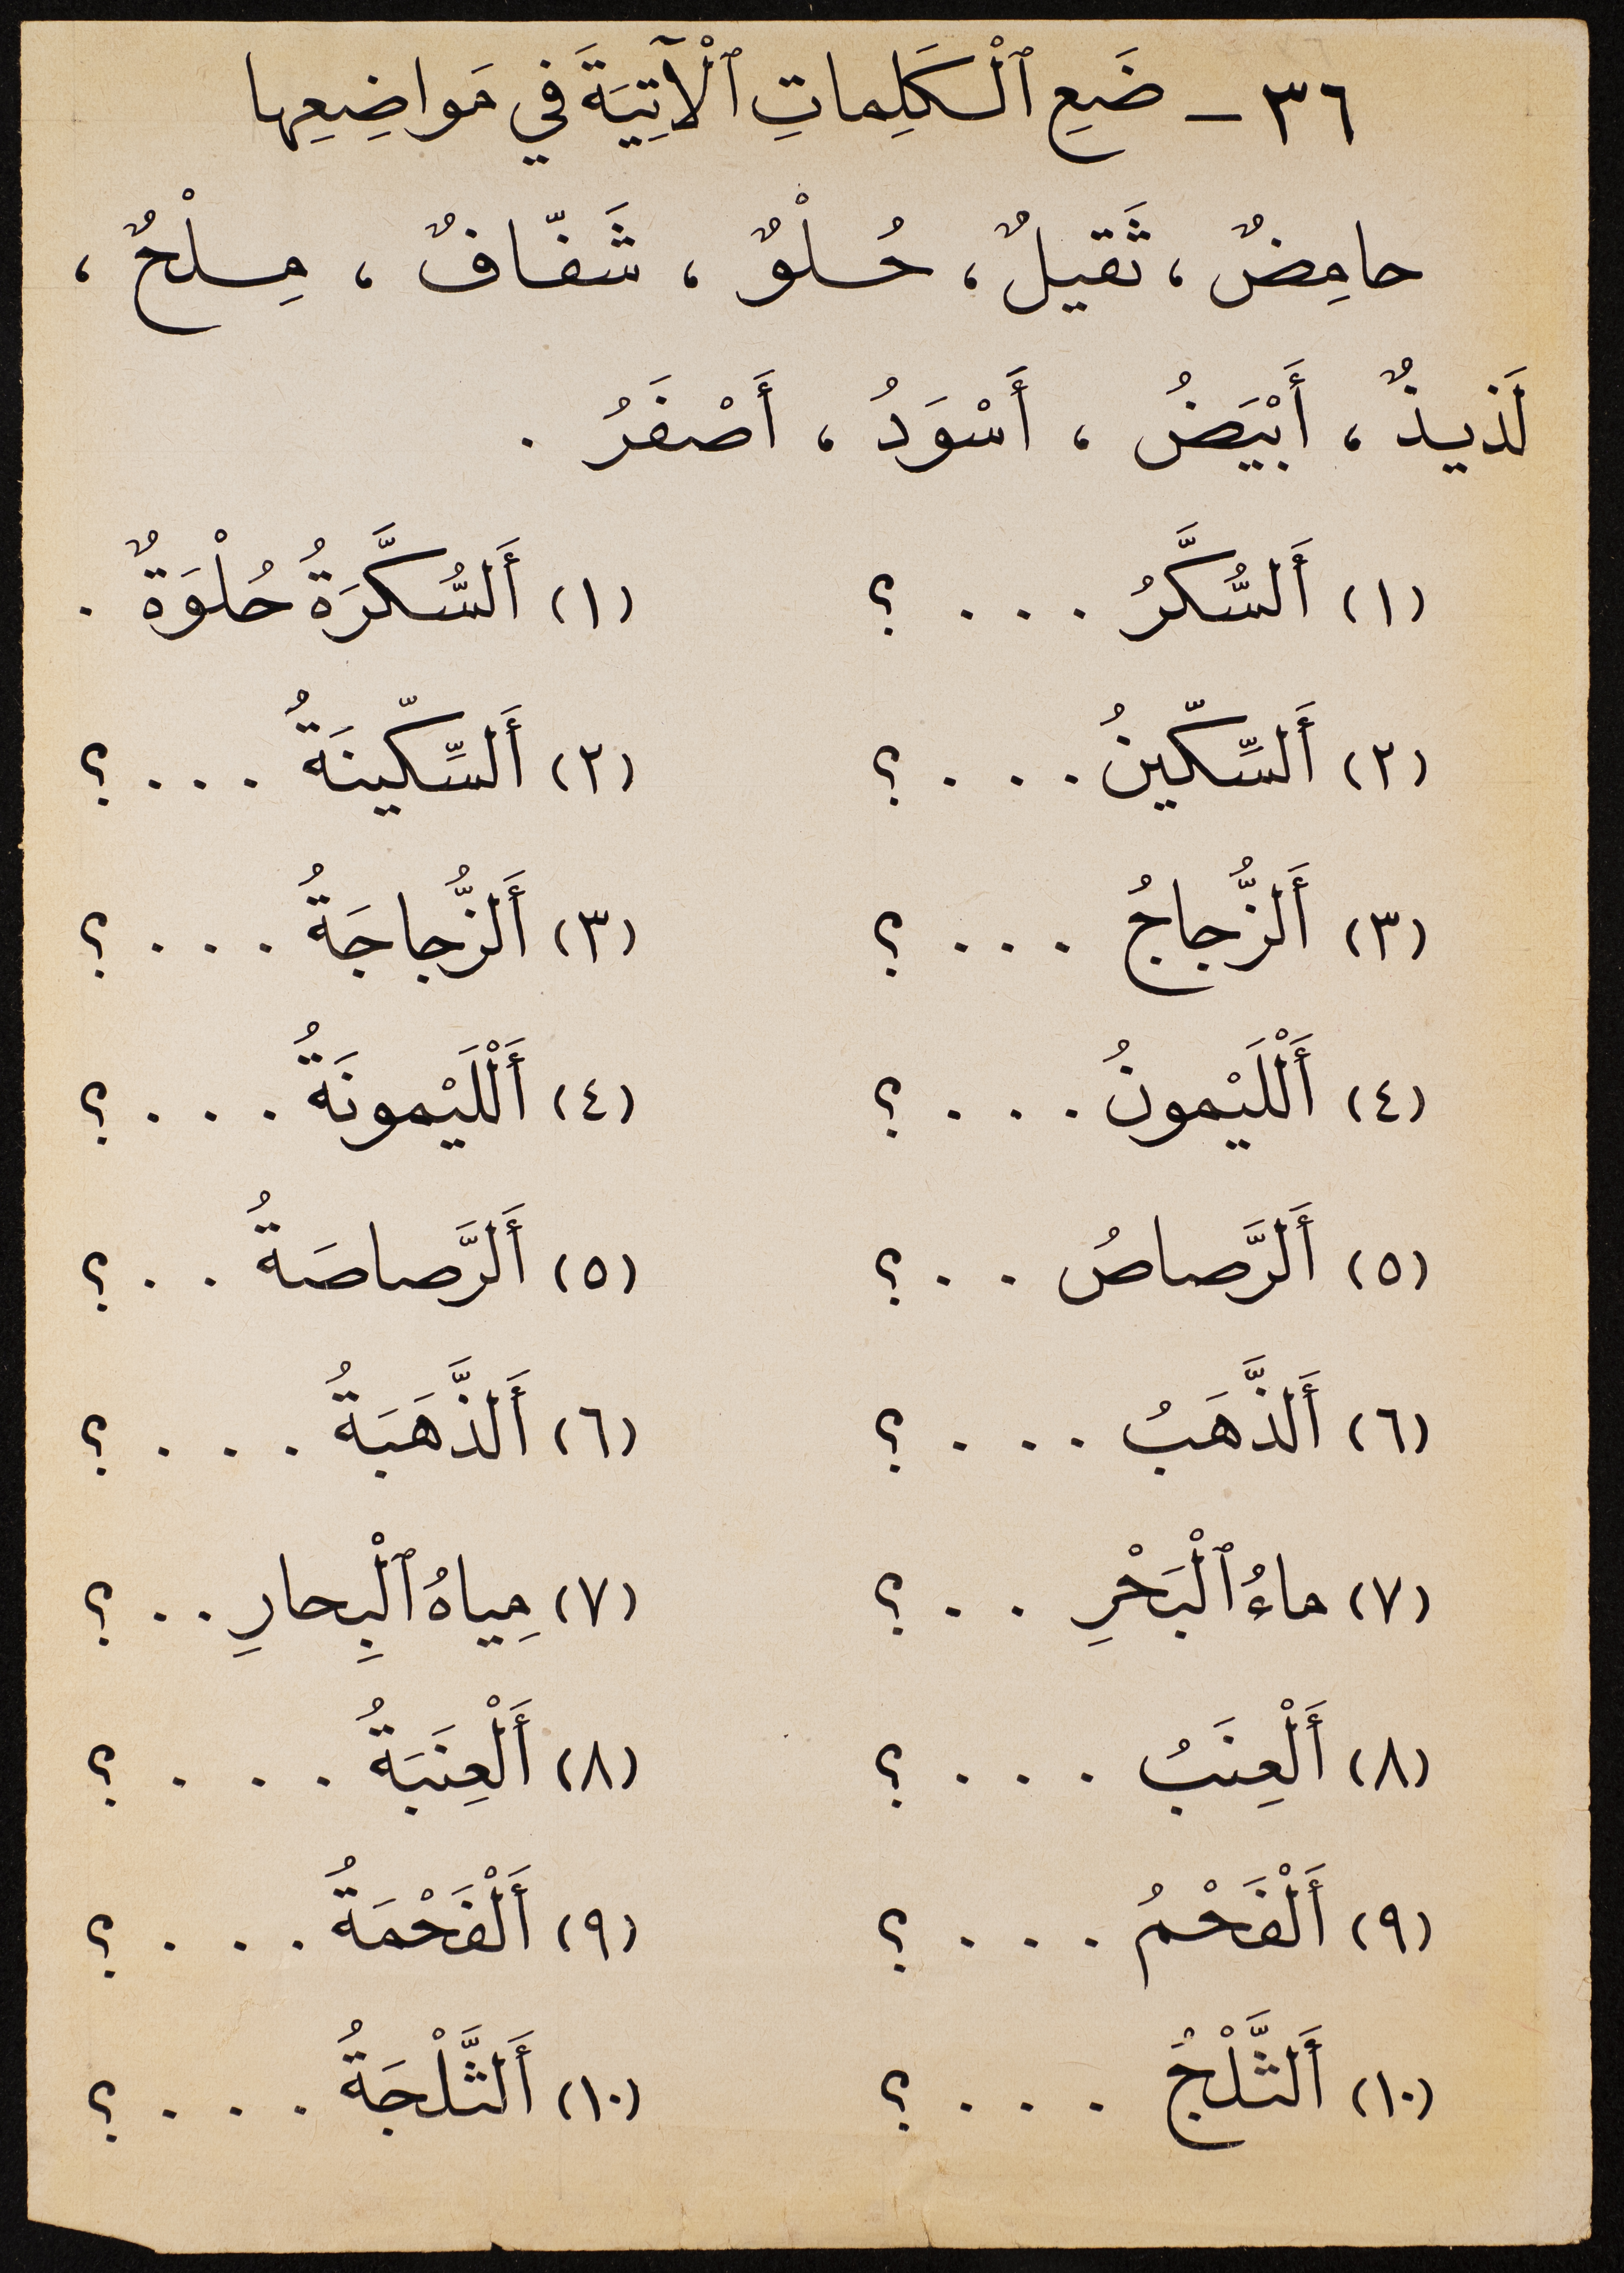 ٣٦ – ضَعِ ٱلْكَلِماتِ ٱلْآتِيَةَ في مَواضِعِها
حامِضٌ ، ثَقيلٌ ، حُلْوٌ ، شَفّافٌ ، مِلْحٌ ،
لَذيذٌ ، أَبْيَضُ ، أَسْوَدُ ، أَصْفَرُ .
(١) أَلسُّكَّرُ . . . ؟ (١) أَلسُّكَّرَةُ حُلْوَةٌ .
(٢) أَلسِّكّينُ . . . ؟ (٢) أَلسِّكّينَةُ . . . ؟
(٣) أَلزُّجاجُ . . . ؟ (٣) أَلزُّجاجَةُ . . . ؟
(٤) أَلْلَيْمونُ . . . ؟ (٤) أَلْلَيْمونَةُ . . . ؟
(٥) أَلرَّصاصُ . . ؟ (٥) أَلرَّصاصَةُ . . ؟
(٦) أَلذَّهَبُ . . . ؟ (٦) أَلذَّهَبَةُ . . . ؟
(٧) ماءُ ٱلْبَحْرِ . . ؟ (٧) مِياهُ ٱلْبِحارِ . . ؟
(٨) أَلْعِنَبُ . . . ؟ (٨) أَلْعِنَبَةُ . . . ؟
(٩) أَلْفَحْمُ . . . ؟ (٩) أَلْفَحْمَةُ . . . ؟
(١٠) أَلثَّلْجُ . . . ؟ (١٠) أَلثَّلْجَةُ . . . ؟